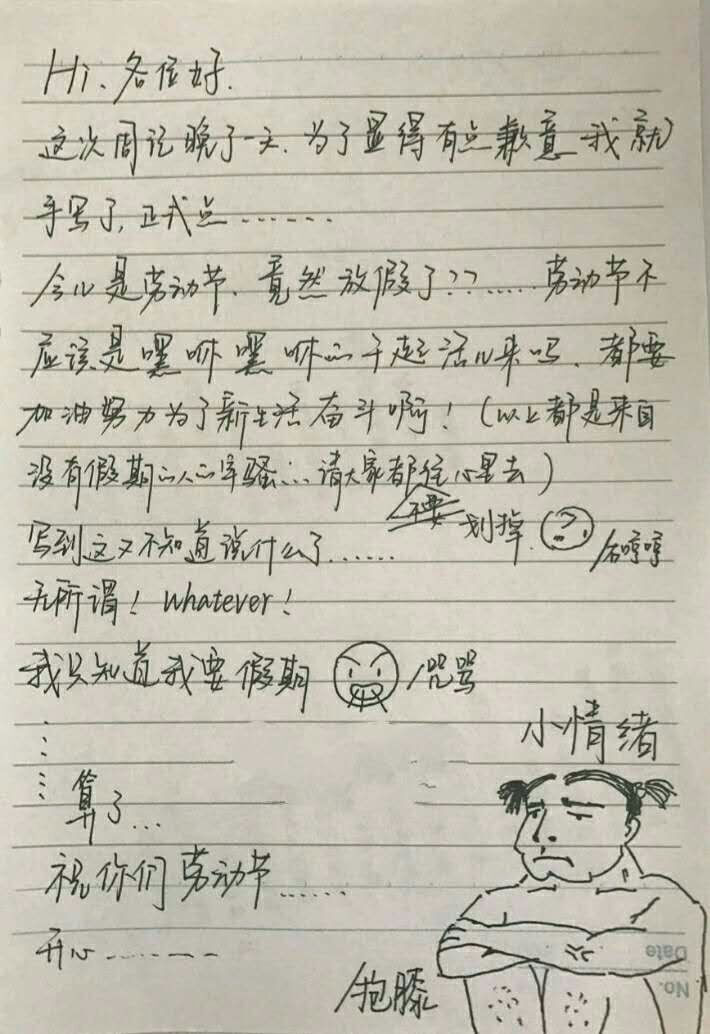 Hi、各位好.
这次周记晚了一天.为了显得有点歉意 我就
手写了,正式点.......
今儿是劳动节、竟然放假了??.....劳动节不
应该是嘿咻嘿咻的干起活儿来吗、都要
加油努力为了新生活奋斗啊!(以上都是来自
没有假期的人的牢骚...请大家都往心里去)
不要 划掉.
写到这又不知道说什么了......
/右哼哼
无所谓!whatever!
我只知道我要假期 /咒骂
小情绪
.......
算了...
祝你们劳动节......
开心.......
/抱膝
Date
No.